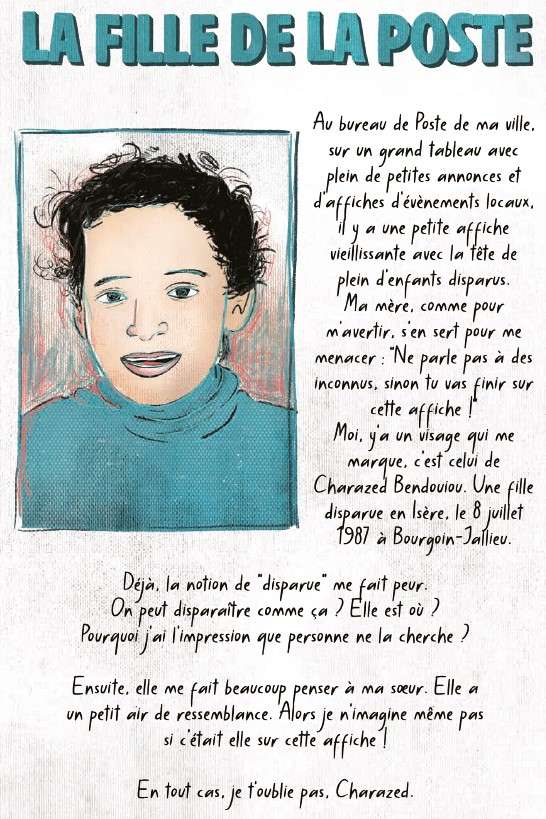 LA FILLE DE LA POSTE
Au bureau de Poste de ma ville,
sur un grand tableau avec
plein de petites annonces et
d'affiches d'évènements locaux,
il y a une petite affiche
vieillissante avec la tête de
plein d'enfants disparus.
Ma mère, comme pour
m'avertir, s'en sert pour me
menacer : "Ne parle pas à des
inconnus, sinon tu vas finir sur
cette affiche !"
Moi, y'a un visage qui me
marque, c'est celui de
Charazed Bendouiou. Une fille
disparue en Isère, le 8 juillet
1987 à Bourgoin-Jallieu.
Déjà, la notion de "disparue" me fait peur.
On peut disparaître comme ça ? Elle est où ?
Pourquoi j'ai l'impression que personne ne la cherche ?
Ensuite, elle me fait beaucoup penser à ma sœur. Elle a
un petit air de ressemblance. Alors je n'imagine même pas
si c'était elle sur cette affiche !
En tout cas, je t'oublie pas, Charazed.